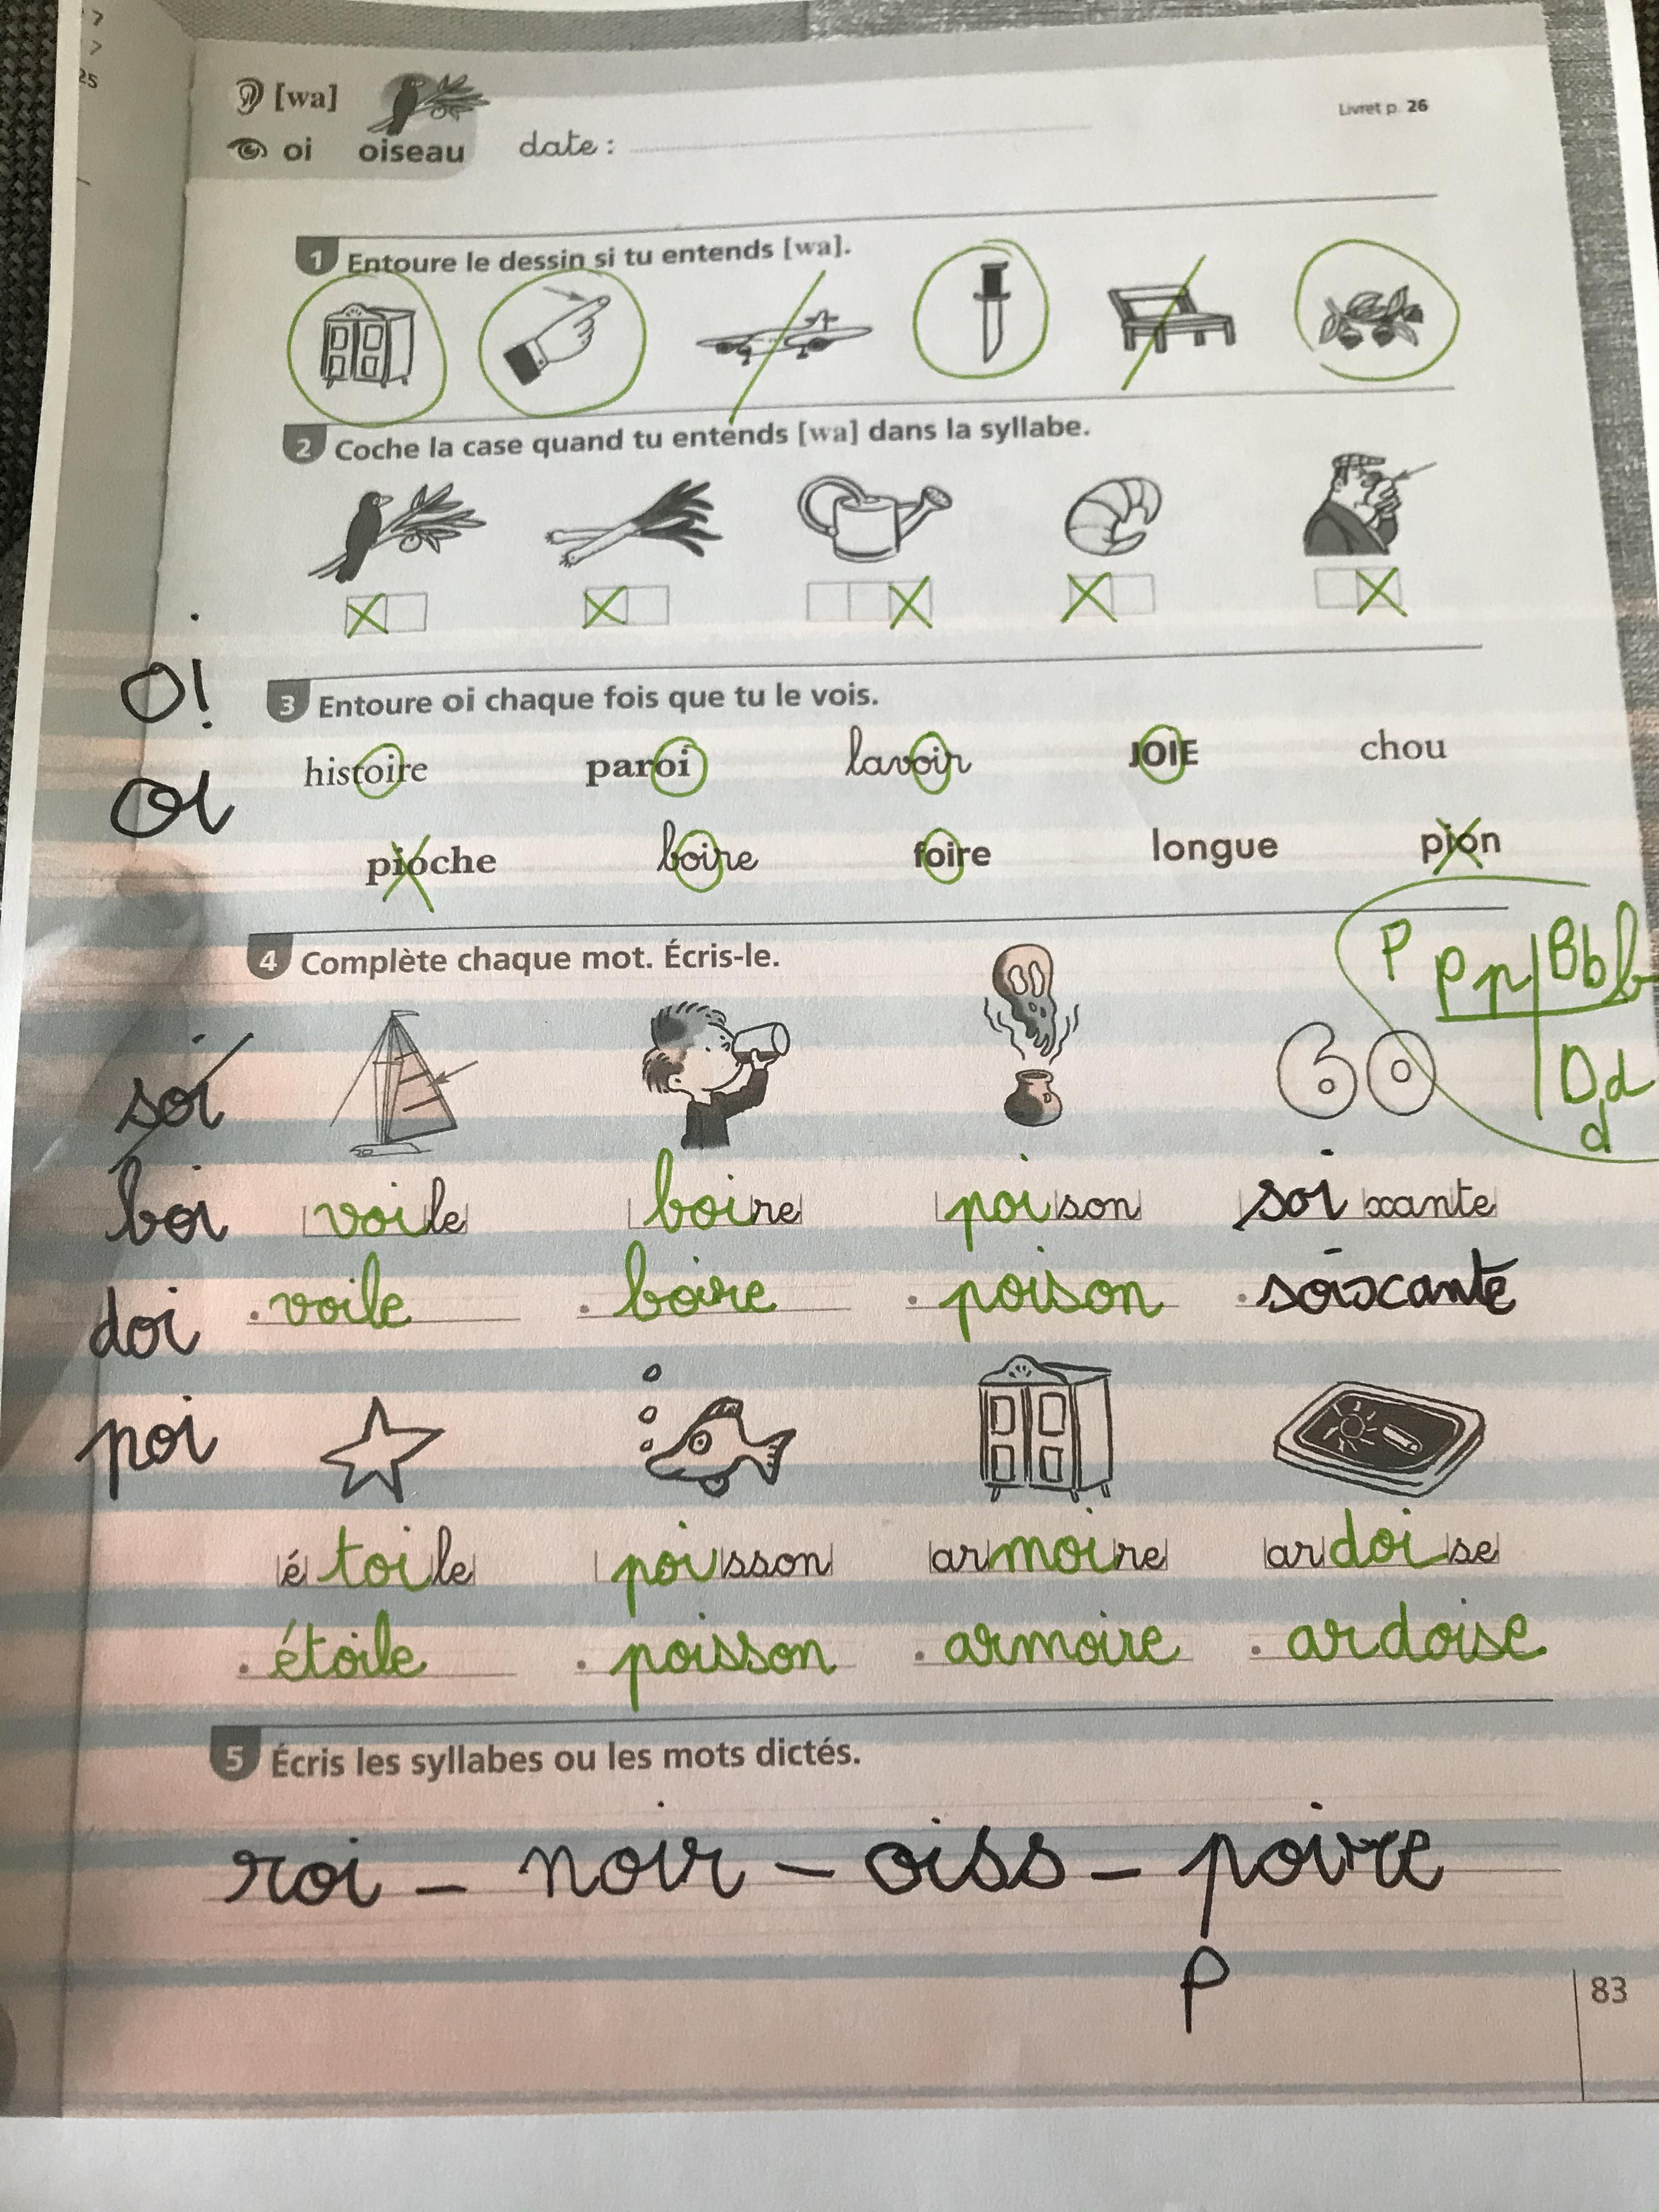 7
7
25
[wa]
oi oiseau date :
Livret p. 26
1 Entoure le dessin si tu entends [wa].
2 Coche la case quand tu entends [wa] dans la syllabe.
oi
oi
3 Entoure oi chaque fois que tu le vois.
histoire paroi lavoir JOIE chou
pioche boire foire longue pion
4 Complète chaque mot. Écris-le.
P P p B b b
D d
d
60
soi
boi
doi
poi
voile boire poison soixante
voile boire poison soixante
étoile poisson armoire ardoise
étoile poisson armoire ardoise
5 Écris les syllabes ou les mots dictés.
roi – noir – oiss – poivre
p
83